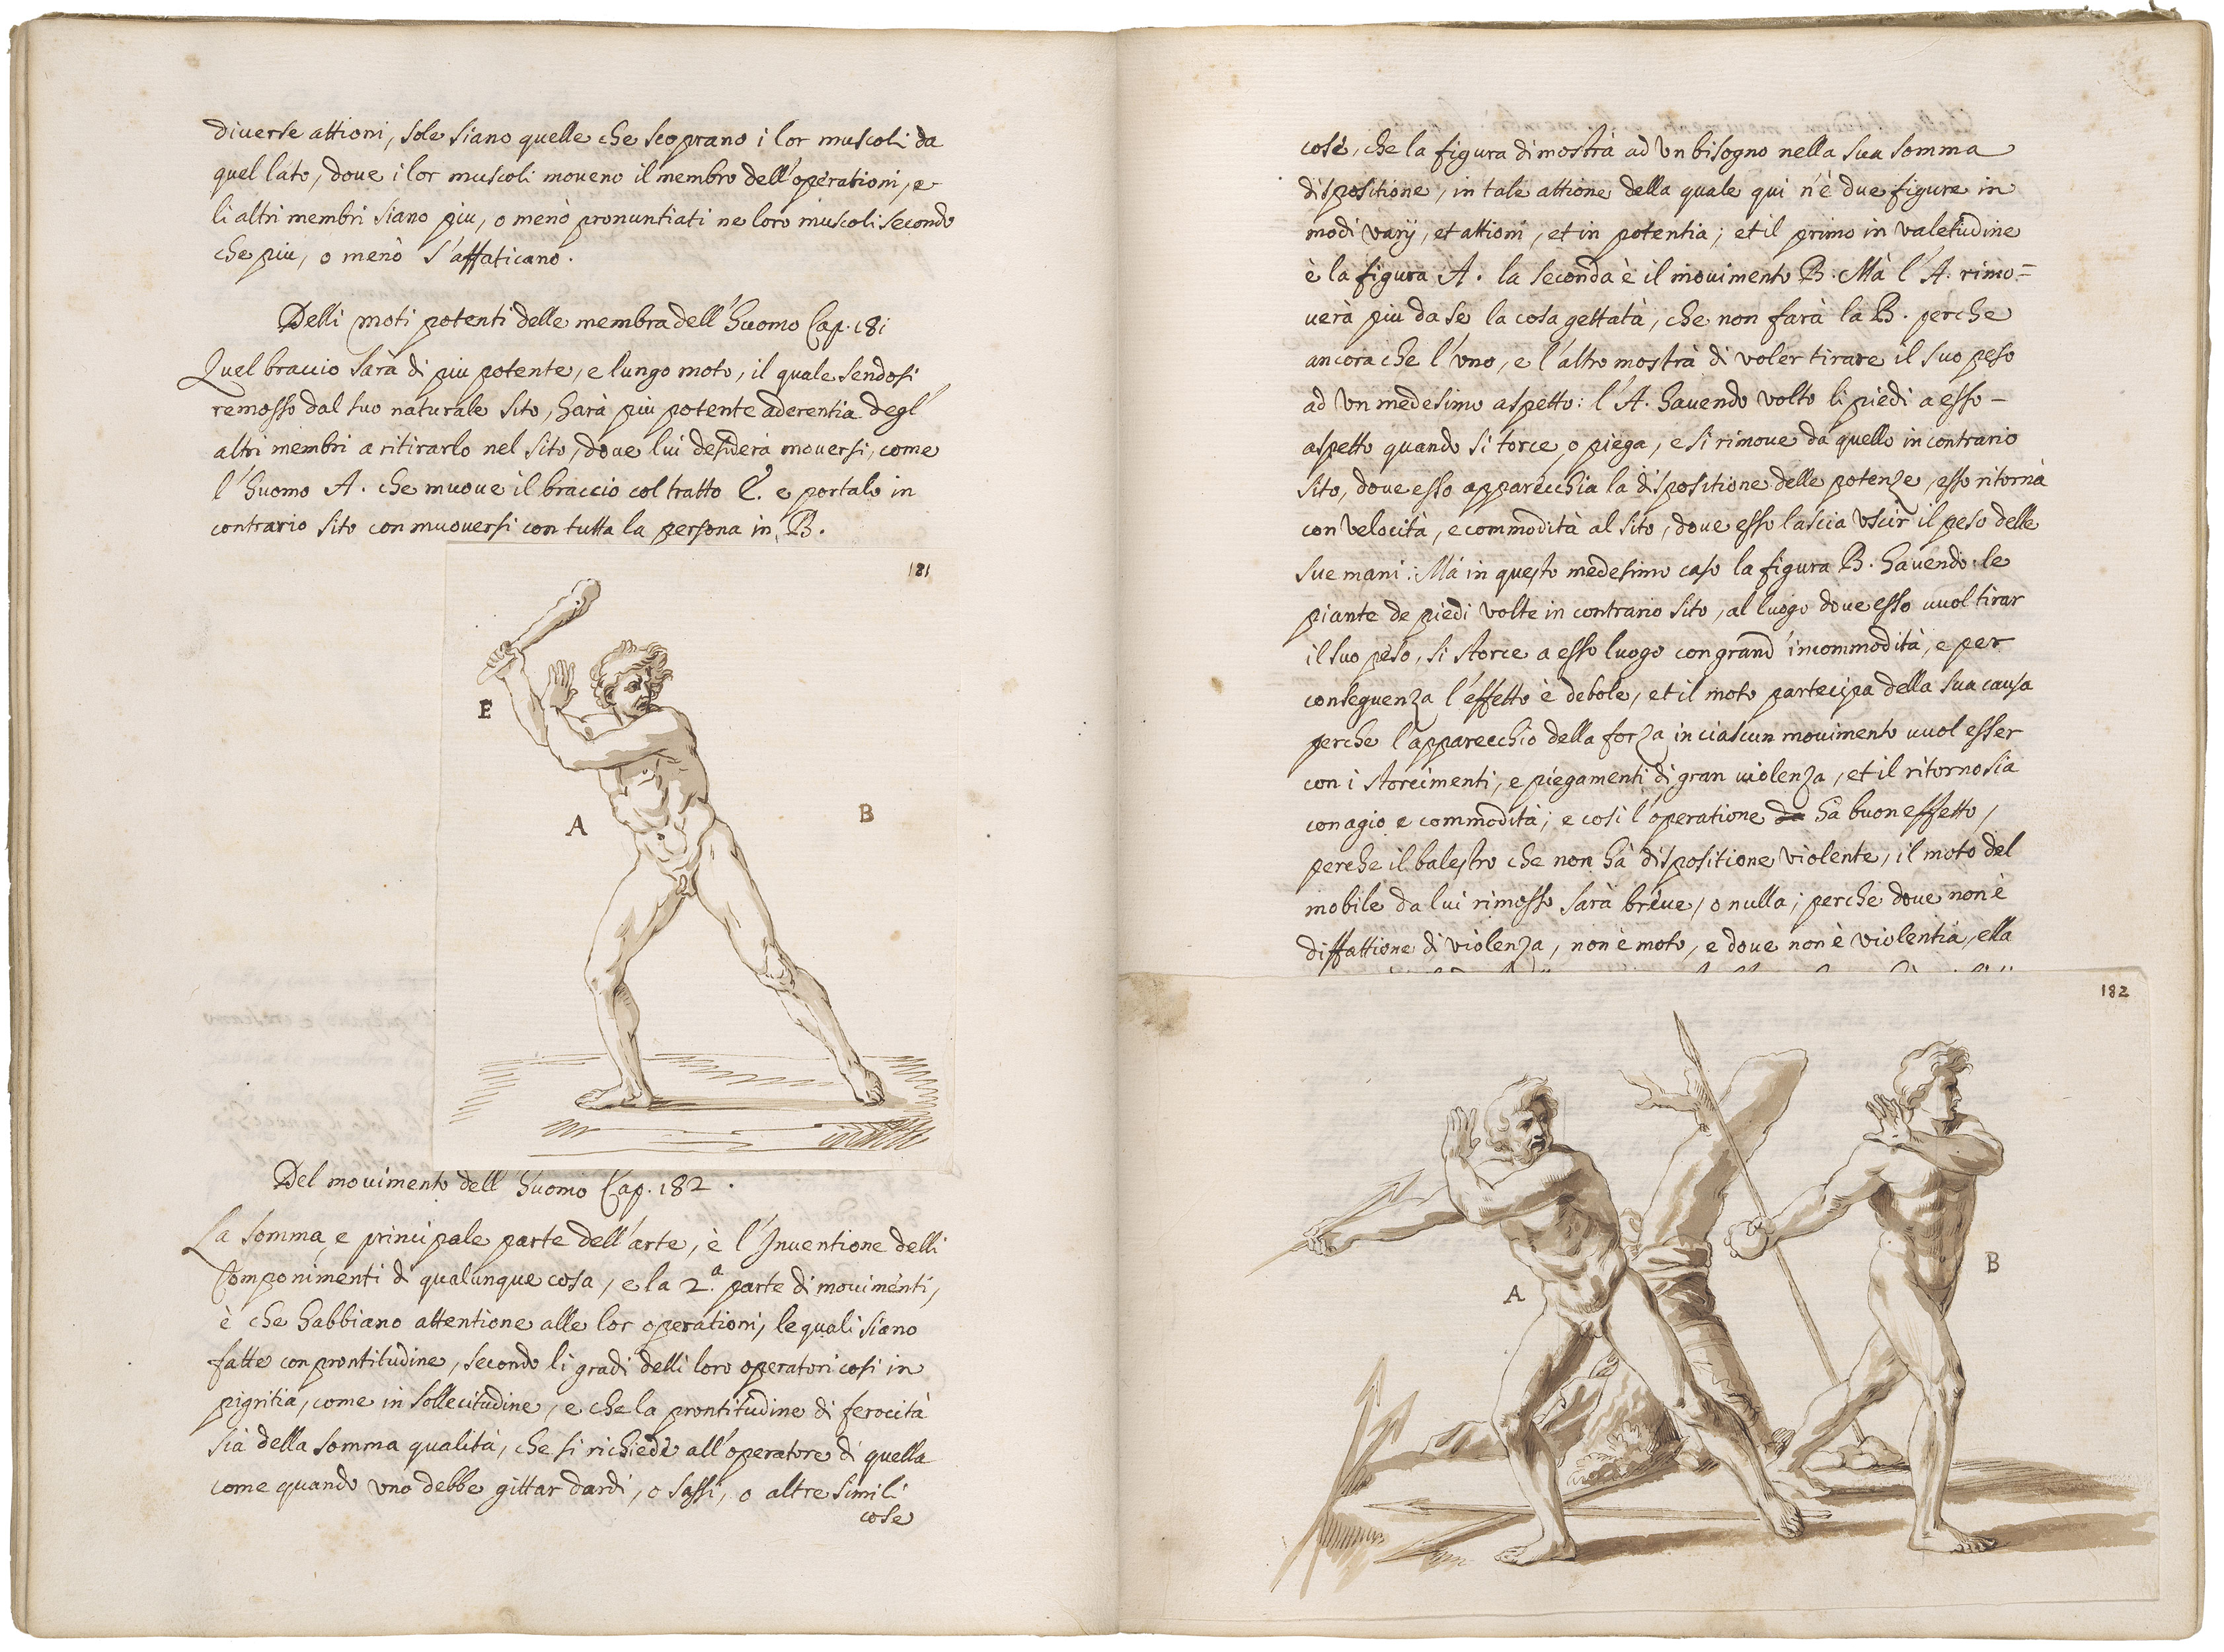 diverse attioni, sole siano quelle che scoprano i lor muscoli da
quel lato, dove i lor muscoli moveno il membro dell'operationi, e
li altri membri siano piu, o menò pronuntiati ne loro muscoli secondo
che piu, o menò s'affaticano.
Delli moti potenti delle membra dell'huomo Cap. 181
Quel braccio sarà di piu potente, e lungo moto, il quale sendosi
remosso dal suo naturale sito, harà piu potente aderentia degl'
altri membri a ritirarlo nel sito, dove lui desidera moversi, come
l'huomo A. che muove il braccio col tratto E. e portalo in
contrario sito con muoversi con tutta la persona in B.
181
E
A
B
Del movimento dell'huomo Cap. 182.
La somma, e principale parte dell'arte, è l'Inventione delli
Componimenti di qualunque cosa, e la 2.a parte di movimenti,
è che habbiano attentione alle lor operationi, le quali siano
fatte con prontitudine, secondo li gradi delli loro operatori cosi in
pigritia, come in sollecitudine, e che la prontitudine di ferocità
sià della somma qualità, che si richiede all'operatore di quella
come quando uno debbe gittar dardi, o sassi, o altre simili
cose
cose, che la figura dimostrà ad un bisogno nella sua somma
dispositione, in tale attione della quale qui n'è due figure in
modi varij, et attioni, et in potentia; et il primo in valetudine
è la figura A. la seconda è il movimento B. Mà l'A. rimo=
verà più da se la cosa gettatà, che non farà la B. perche
ancora che l'uno, e l'altro mostrà di voler tirare il suo peso
ad un medesimo aspetto: l'A. havendo volto li piedi a esso
aspetto quando si torce, o piega, e si rimove da quello in contrario
sito, dove esso apparecchia la dispositione delle potenze, esso ritornà
con velocità, e commodità al sito, dove esso lascia uscir il peso delle
sue mani: Mà in questo medesimo caso la figura B. havendo le
piante de piedi volte in contrario sito, al luogo dove esso vuol tirar
il suo peso, si storce a esso luogo con grand'incommodità, e per
conseguenza l'effetto è debole, et il moto partecipa della sua causa
perche l'apparecchio della forza in ciascun movimento vuol esser
con i storcimenti, e piegamenti di gran violenza, et il ritorno sia
con agio e commodità; e cosi l'operatione da hà buon effetto,
perche il balestro che non hà dispositione violente, il moto del
mobile da lui rimosso sarà breve, o nulla; perche dove non è
diffattione di violenza, non è moto, e dove non è violentia, ella
182
A
B